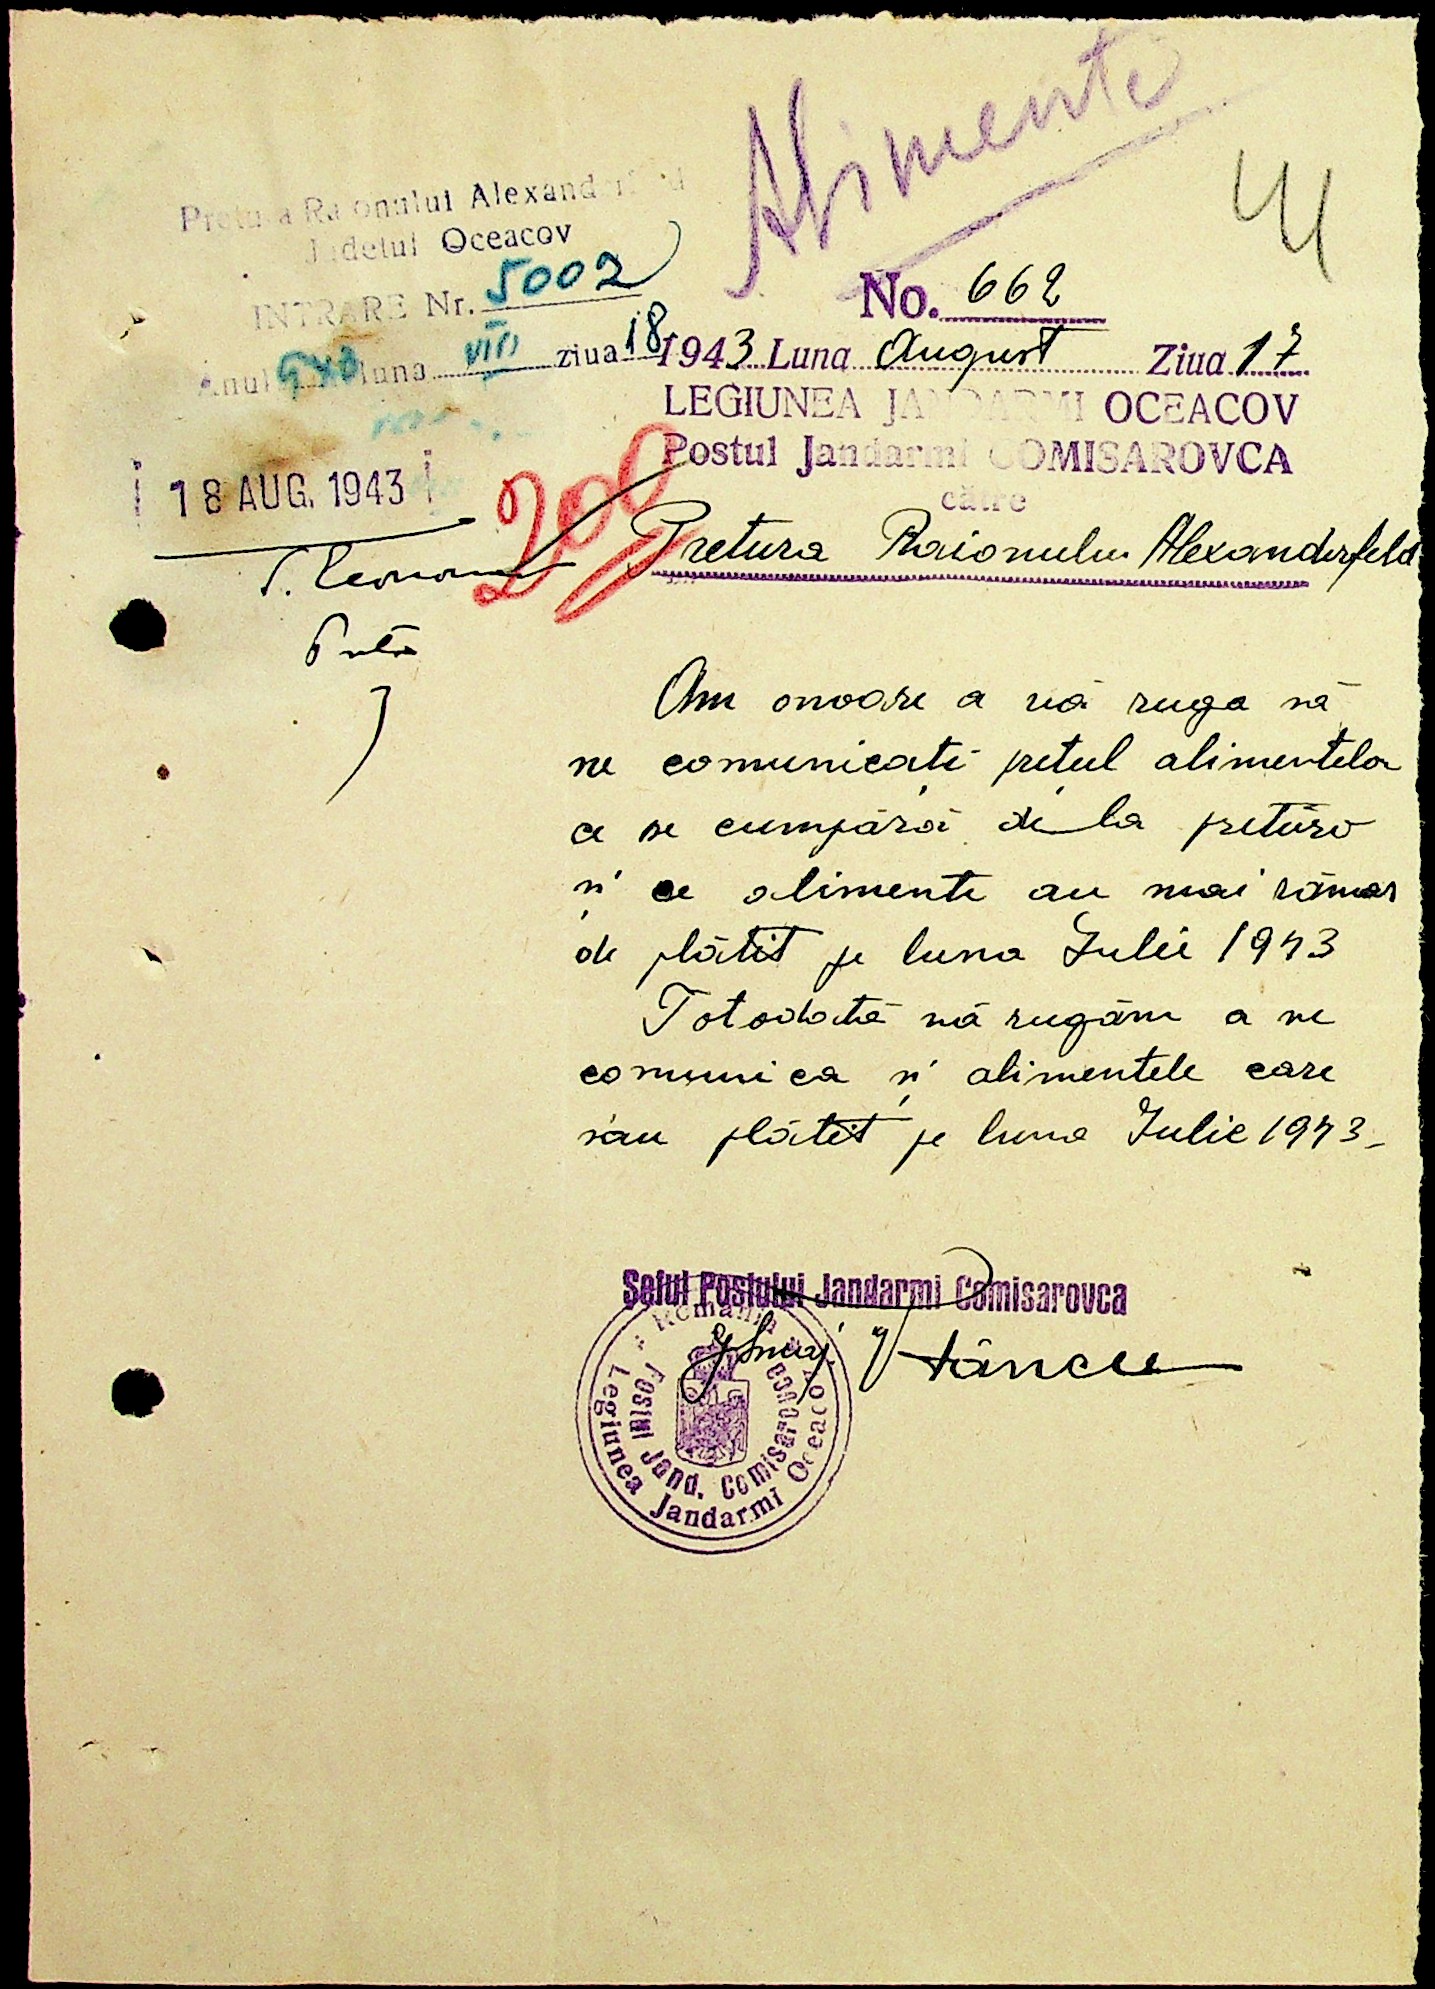 Alimente
Pretura Raionului Alexanderfeld
Judetul Oceacov
INTRARE Nr. 5002
Anul 943 luna VIII ziua 18
18 AUG. 1943
200
No. 662
1943 Luna August Ziua 17
LEGIUNEA JANDARMI OCEACOV
Postul Jandarmi COMISAROVCA
către
Pretura Raionului Alexanderfeld
Am onoare a vă ruga să
ne comunicați prețul alimentelor
ce se cumpără de la pretură
și ce alimente au mai rămas
de plătit pe luna Iulie 1943
Totodată vă rugăm a ne
comunica și alimentele care
sau plătit pe luna Iulie 1943-
Șeful Postului Jandarmi Comisarovca
România
Legiunea Jandarmi Oceacov
Postul Jand. Comisarovca